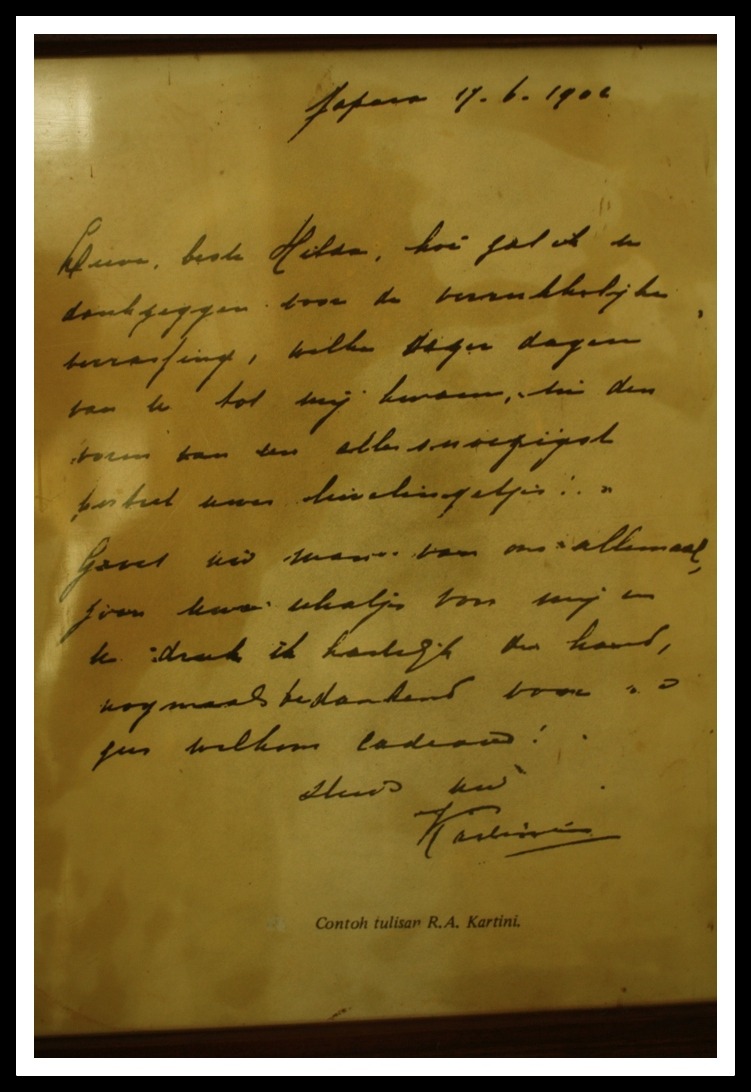 Japara 17. 6. 1902
Lieve, beste Hilda, hoe zal ik u
dankzeggen voor de verrukkelijke
verrassing, welke dezer dagen
van u tot mij kwam, in den
vorm van een allersnoezigst
portret uwer lievelingetjes!
Groet uw man van ons allemaal,
zoen uwe schatjes voor mij en
u druk ik hartelijk de hand,
nogmaals bedankend voor uw
zeer welkom cadeau!
Steeds uw
Kartini
Contoh tulisan R.A. Kartini.